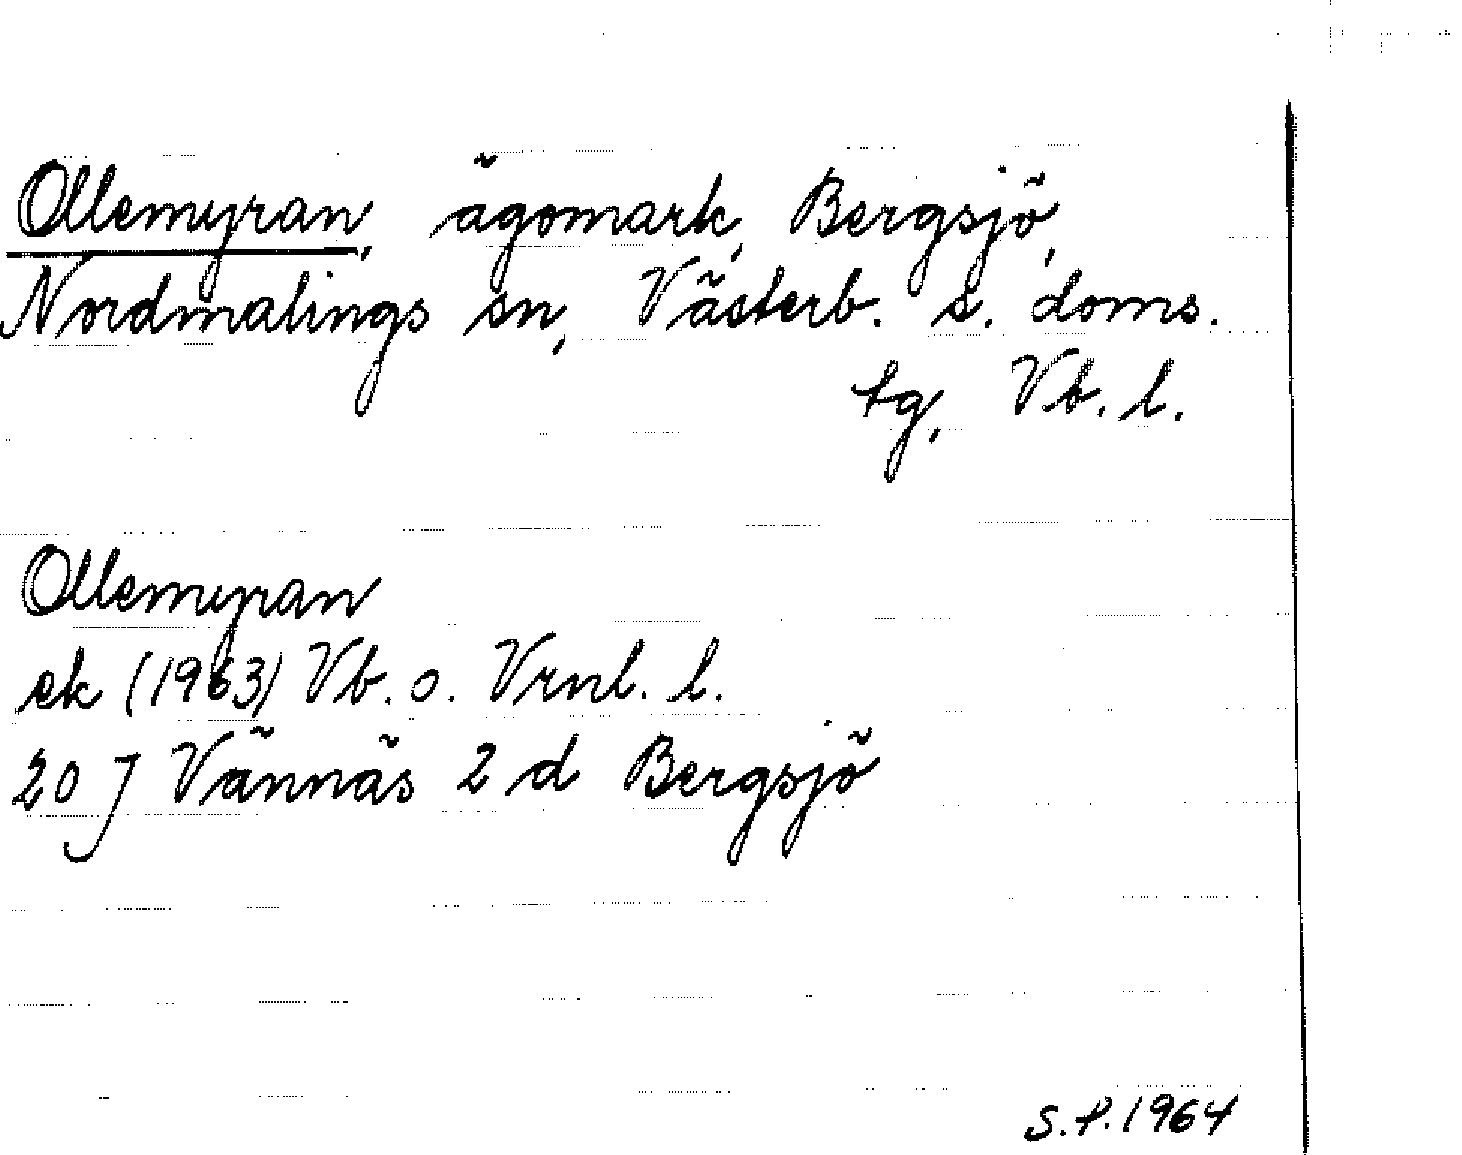 Ollemyran, ägomark, Bergsjö,
Nordmalings sn, Västerb. s. doms.
tg, Vb. l.
Ollemyran
ek (1963) Vb. o. Vrnl. l.
20 J Vännäs 2 d Bergsjö
S.P. 1964